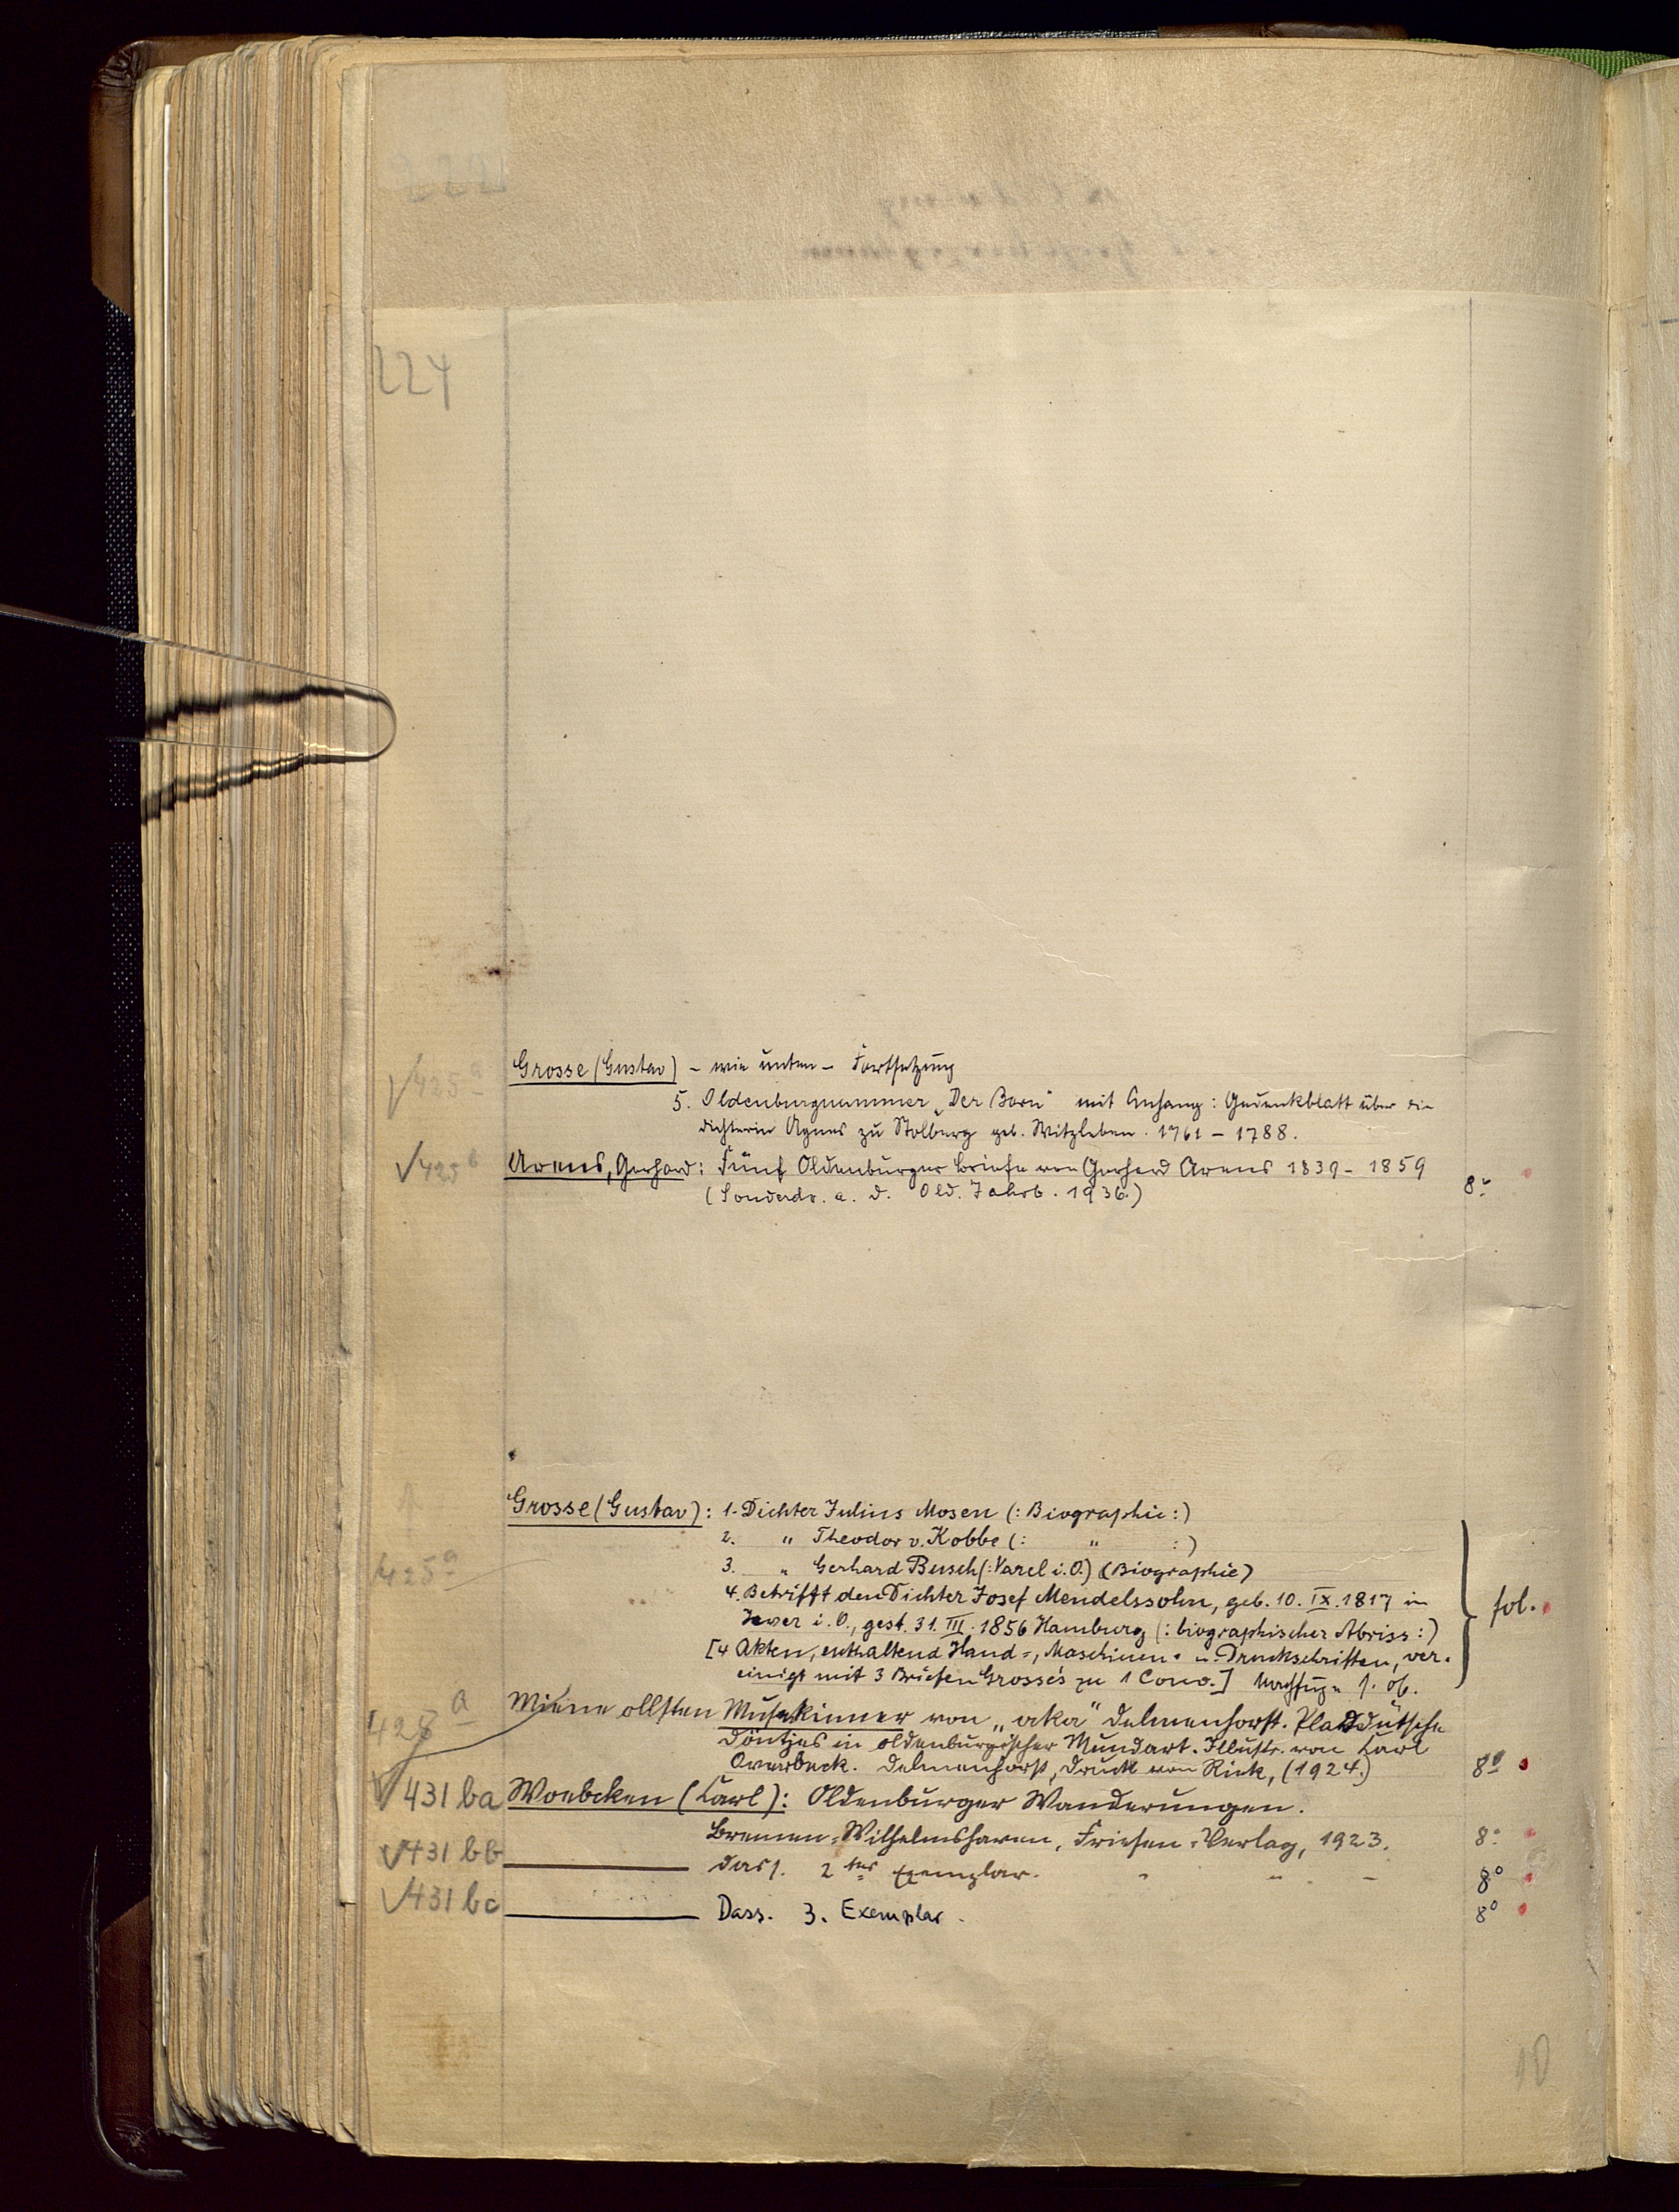 224
√425a Grosse (Gustav) – wie unten – Fortsetzung
5. Oldenburgnummer „Der Born" mit Anhang: Gedenkblatt über die
Dichterin Agnes zu Stolberg geb. Witzleben. 1761 – 1788.
√425b Arens, Gerhard: Fünf Oldenburger Briefe von Gerhard Arens 1839 – 1859
(Sonderdr. a. d. Old. Jahrb. 1936.) 8°
Grosse (Gustav): 1. Dichter Julius Mosen (: Biographie :)
2. " Theodor v. Kobbe (: " :)
425a 3. " Gerhard Busch (: Varel i. O.) (Biographie)
4. Betrifft den Dichter Josef Mendelssohn, geb. 10. IX. 1817 in
Jever i. O., gest. 31. III. 1856 Hamburg (: biographischer Abriss :) fol.
[4 Akten, enthaltend Hand-, Maschinen- u. Druckschriften, ver-
einigt mit 3 Briefen Grosse's zu 1 Conv.] s. ob.
428a Miene ollsten Musekinner von „aka" Delmenhorst. Pladdütsche
Döntjes in oldenburgischer Mundart. Illustr. von Carl
Overbeck. Delmenhorst, Druck von Riek, (1924.) 8°
√431 ba Woebcken (Carl): Oldenburger Wanderungen.
Bremen-Wilhelmshaven, Friesen-Verlag, 1923. 8°
√431 bb ——— Dass. 2tes Exemplar. " " " 8°
√431 bc ——— Dass. 3. Exemplar. 8°
10